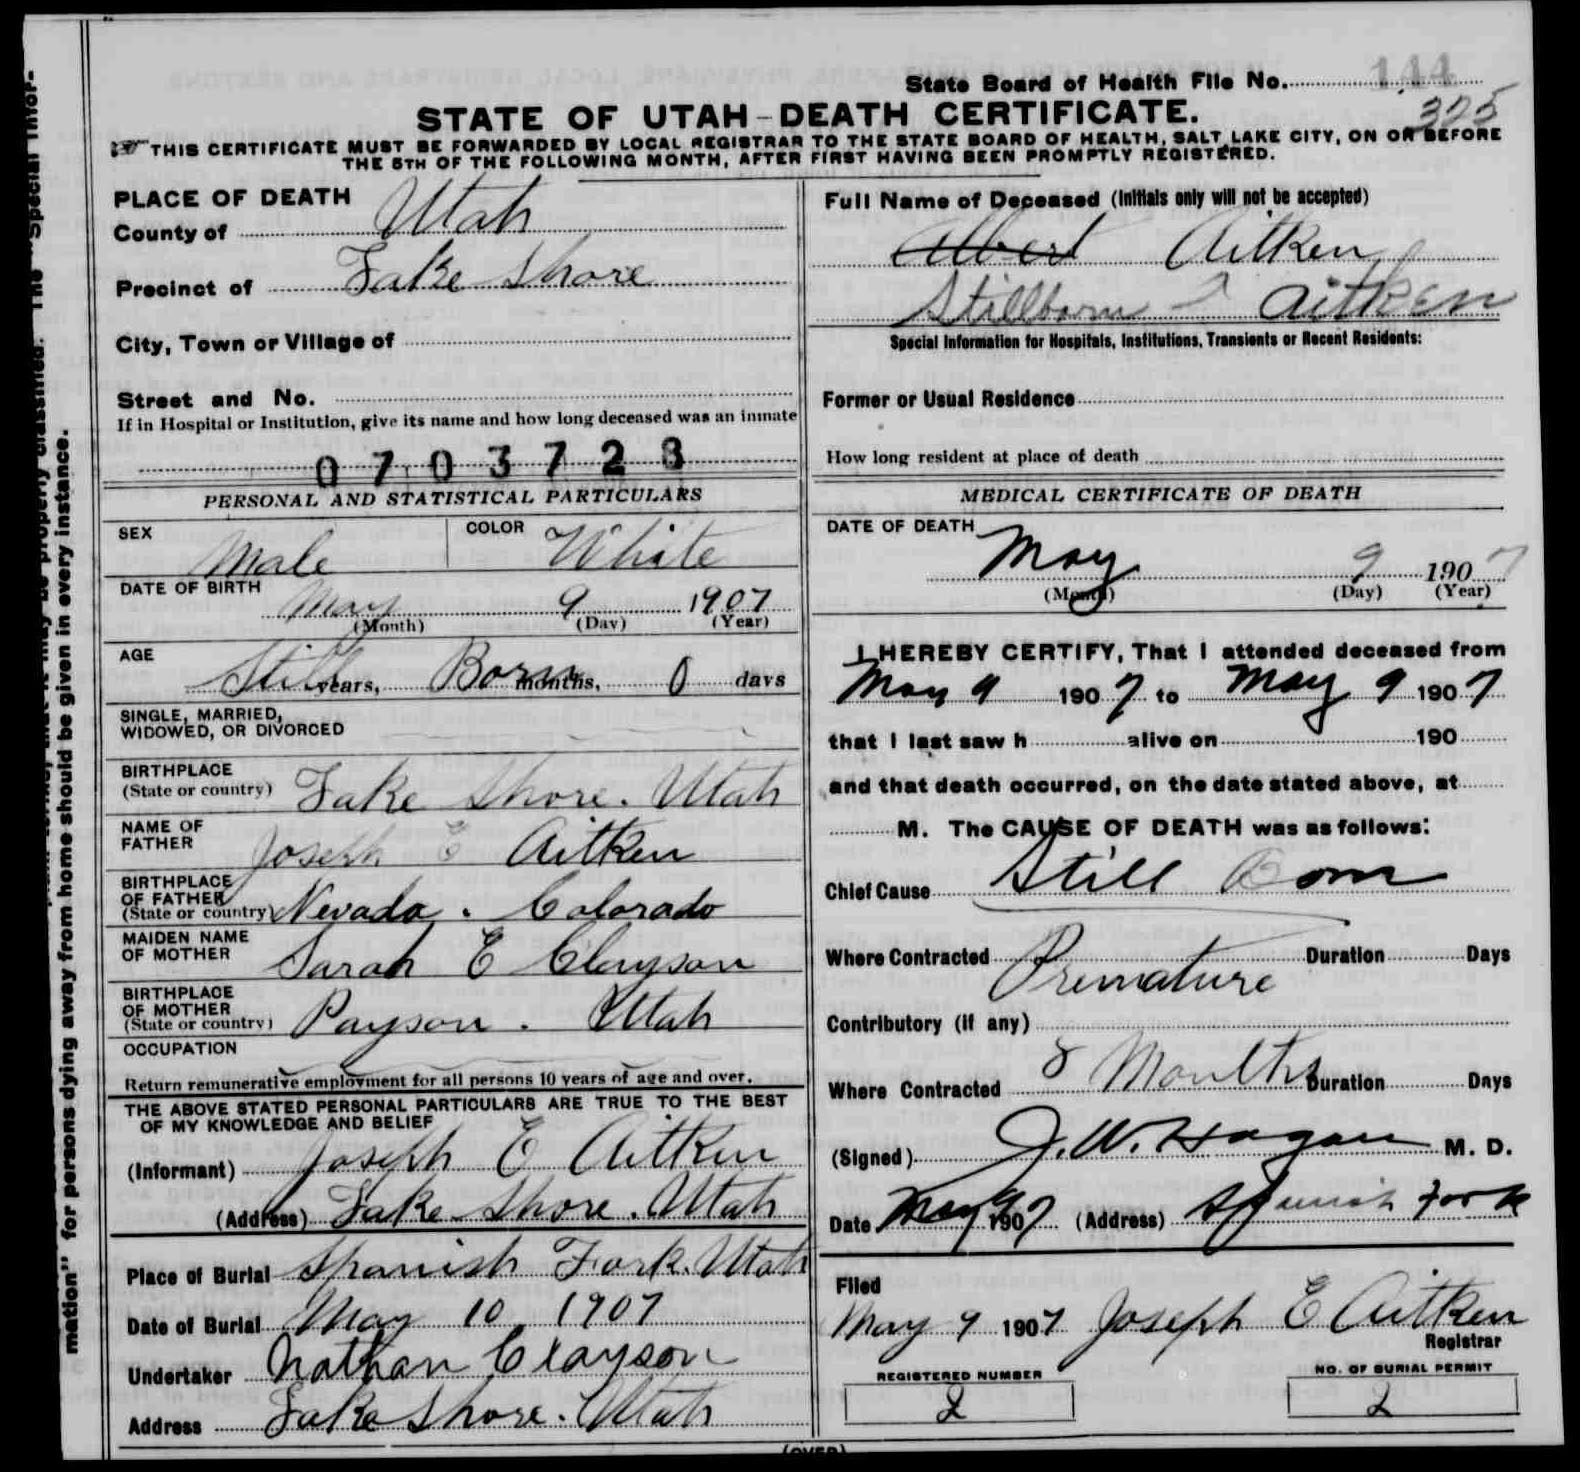 State Board of Health File No. 144
325
STATE OF UTAH-DEATH CERTIFICATE.
THIS CERTIFICATE MUST BE FORWARDED BY LOCAL REGISTRAR TO THE STATE BOARD OF HEALTH, SALT LAKE CITY, ON OR BEFORE
THE 5TH OF THE FOLLOWING MONTH, AFTER FIRST HAVING BEEN PROMPTLY REGISTERED.
PLACE OF DEATH
County of Utah
Precinct of Lake Shore
City, Town or Village of
Street and No.
If in Hospital or Institution, give its name and how long deceased was an inmate
0703728
PERSONAL AND STATISTICAL PARTICULARS
SEX Male COLOR White
DATE OF BIRTH May 9 1907
(Month) (Day) (Year)
AGE Still years, Born months, 0 days
SINGLE, MARRIED,
WIDOWED, OR DIVORCED
BIRTHPLACE
(State or country) Lake Shore. Utah
NAME OF
FATHER Joseph E Aitken
BIRTHPLACE
OF FATHER
(State or country) Nevada. Colorado
MAIDEN NAME
OF MOTHER Sarah E Clayson
BIRTHPLACE
OF MOTHER
(State or country) Payson. Utah
OCCUPATION
Return remunerative employment for all persons 10 years of age and over.
THE ABOVE STATED PERSONAL PARTICULARS ARE TRUE TO THE BEST
OF MY KNOWLEDGE AND BELIEF
(Informant) Joseph E Aitken
(Address) Lake Shore. Utah
Place of Burial Spanish Fork. Utah
Date of Burial May 10 1907
Undertaker Nathan Clayson
Address Lake Shore. Utah
Full Name of Deceased (Initials only will not be accepted)
Albert Aitken
Stillborn Aitken
Special Information for Hospitals, Institutions, Transients or Recent Residents:
Former or Usual Residence
How long resident at place of death
MEDICAL CERTIFICATE OF DEATH
DATE OF DEATH
May 9 1907
(Month) (Day) (Year)
I HEREBY CERTIFY, That I attended deceased from
May 9 1907 to May 9 1907
that I last saw h alive on 190
and that death occurred, on the date stated above, at
M. The CAUSE OF DEATH was as follows:
Chief Cause Still Born
Where Contracted Duration Days
Premature
Contributory (if any)
8 Months
Where Contracted Duration Days
(Signed) J. W. Hagan M. D.
Date May 9 1907 (Address) Spanish Fork
Filed
May 9 1907 Joseph E Aitken
Registrar
REGISTERED NUMBER NO. OF BURIAL PERMIT
2 2
(OVER)
mation" for persons dying away from home should be given in every instance.
properly classified. The "Special Infor-